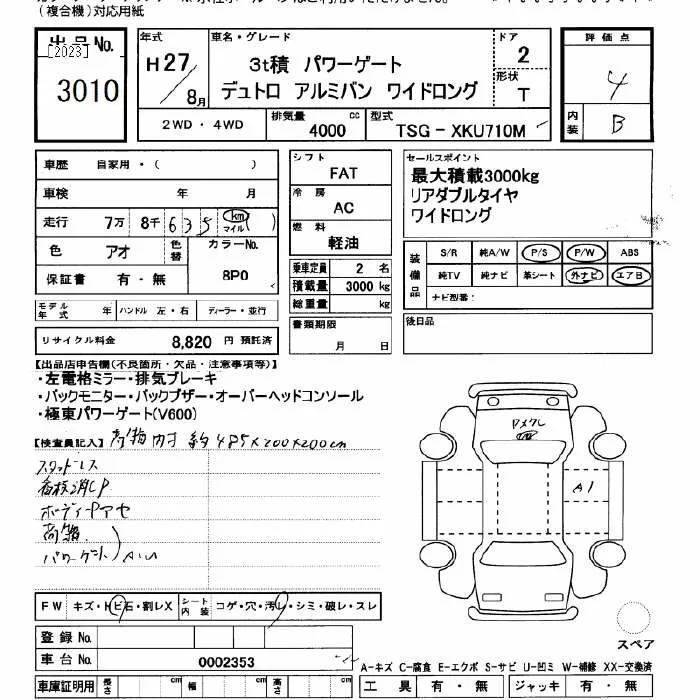 (複合機)対応用紙
出品No.
[2023]
3010
年式
H27/8月
車名・グレード
3t積 パワーゲート
デュトロ アルミバン ワイドロング
ドア
2
形状
T
2WD・4WD
排気量
4000 cc
型式
TSG-XKU710M
評価点
4
内装
B
車歴 自家用・( )
車検 年 月
走行 7万 8千 635 km マイル ( )
色 アオ
色替
カラーNo.
8P0
保証書 有・無
シフト
FAT
冷房
AC
燃料
軽油
乗車定員 2 名
積載量 3000 kg
総重量 kg
セールスポイント
最大積載3000kg
リアダブルタイヤ
ワイドロング
装備品
S/R 純A/W P/S P/W ABS
純TV 純ナビ 革シート 外ナビ エアB
ナビ型番:
モデル年式 年 ハンドル 左・右 ディーラー・並行
リサイクル料金 8,820 円 預託済
書類期限
月 日
後日品
【出品店申告欄(不良箇所・欠品・注意事項等)】
・左電格ミラー・排気ブレーキ
・バックモニター・バックブザー・オーバーヘッドコンソール
・極東パワーゲート(V600)
【検査員記入】 荷箱内寸 約485×200×200cm
スタッドレス
ボディーPアセ
荷箱
パワーゲート
A・U
A1
FW キズ・トビ石・割レX
シート内装 コゲ・穴・汚レ・シミ・破レ・スレ
登録No.
車台No. 0002353
スペア
A-キズ C-腐食 E-エクボ S-サビ U-凹ミ W-補修 XX-交換済
車庫証明用 長さ cm 幅 cm 高さ cm
工具 有・無 ジャッキ 有・無